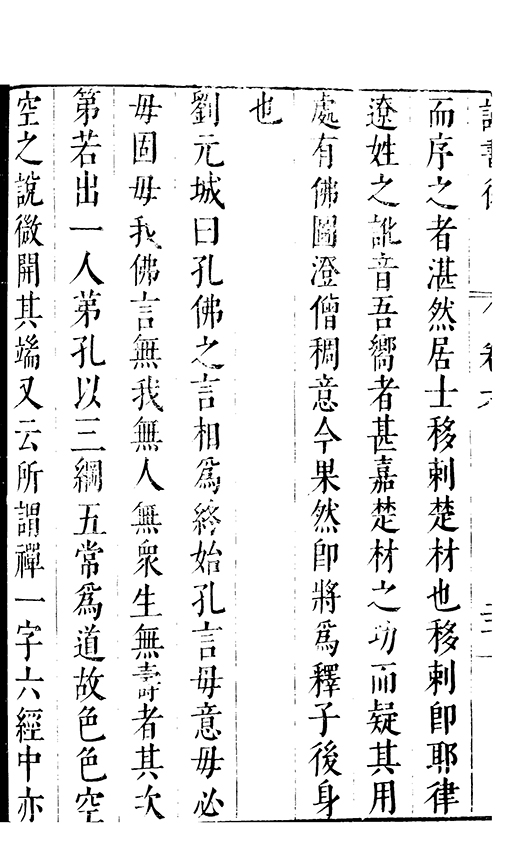 而序之者湛然居士移剌楚材也移剌卽耶律
遼姓之訛音吾嚮者甚嘉楚材之功而疑其用
處有佛圖澄僧稠意今果然卽將爲釋子後身
也
劉元城曰孔佛之言相爲終始孔言毋意毋必
毋固毋我佛言無我無人無衆生無壽者其次
第若出一人苐孔以三綱五常爲道故色色空
空之說微開其端又云所謂禪一字六經中亦